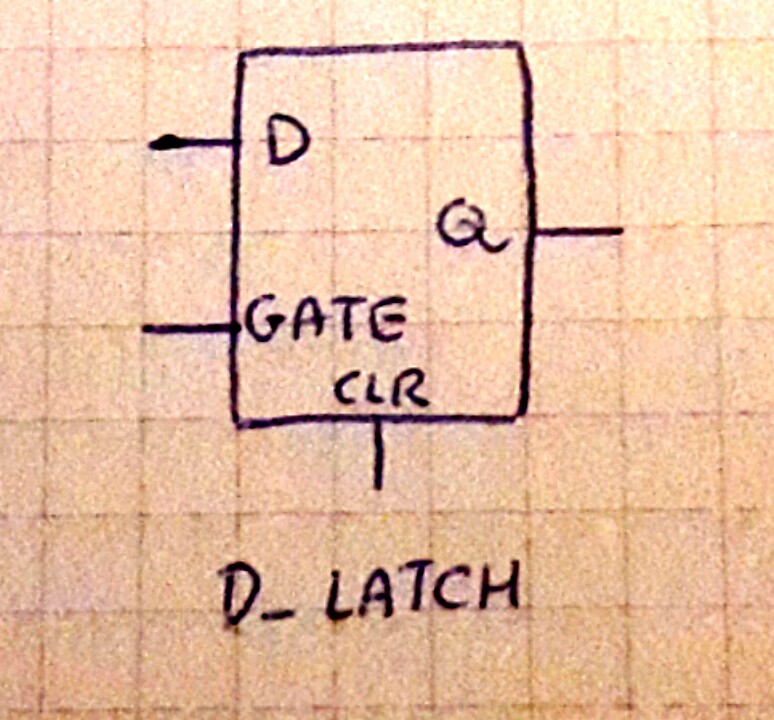 D
Q
GATE
CLR
D_ LATCH